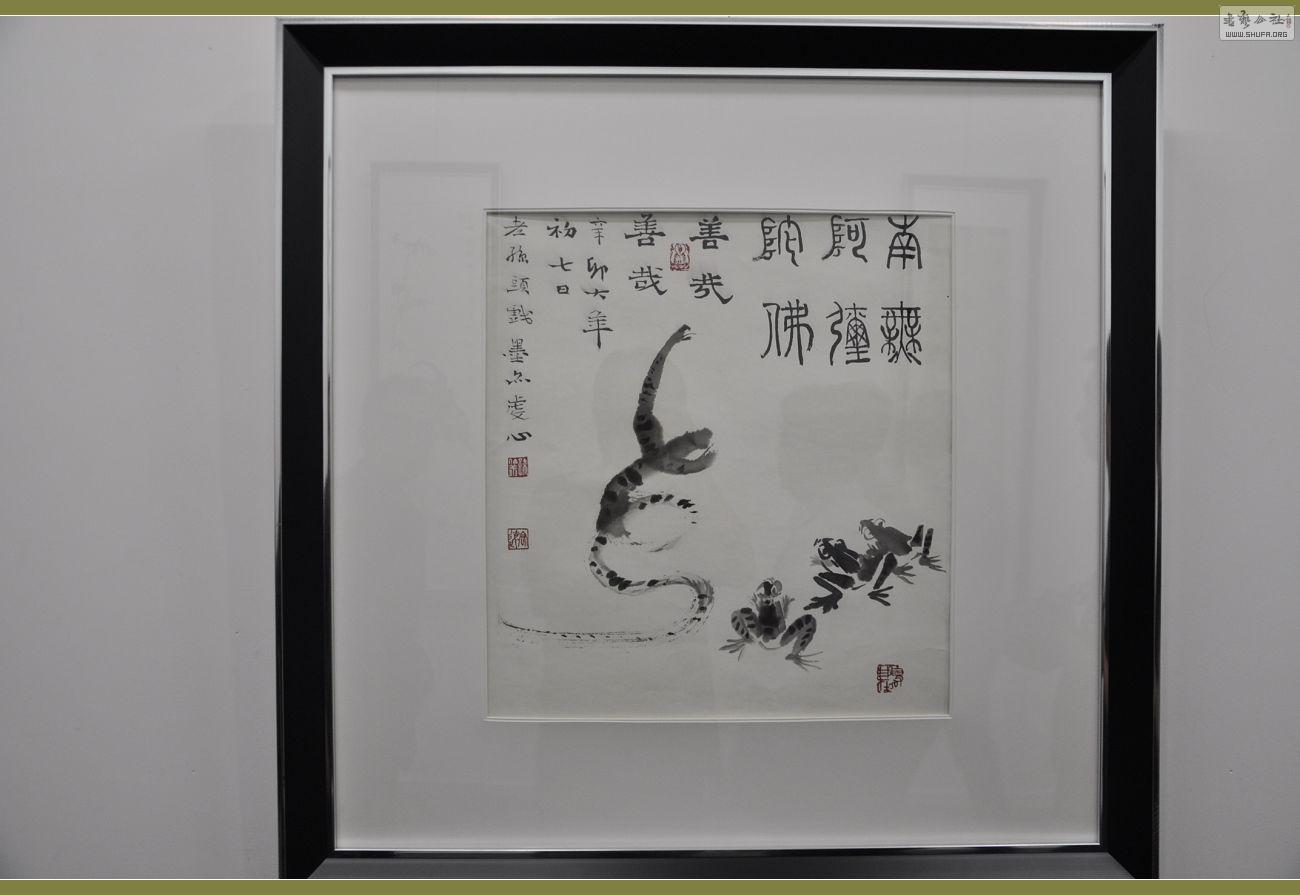 南無
阿彌
陀佛
善哉
善哉
辛卯大年
初七日
老孫頭戲墨
心
WWW.SHUFA.ORG